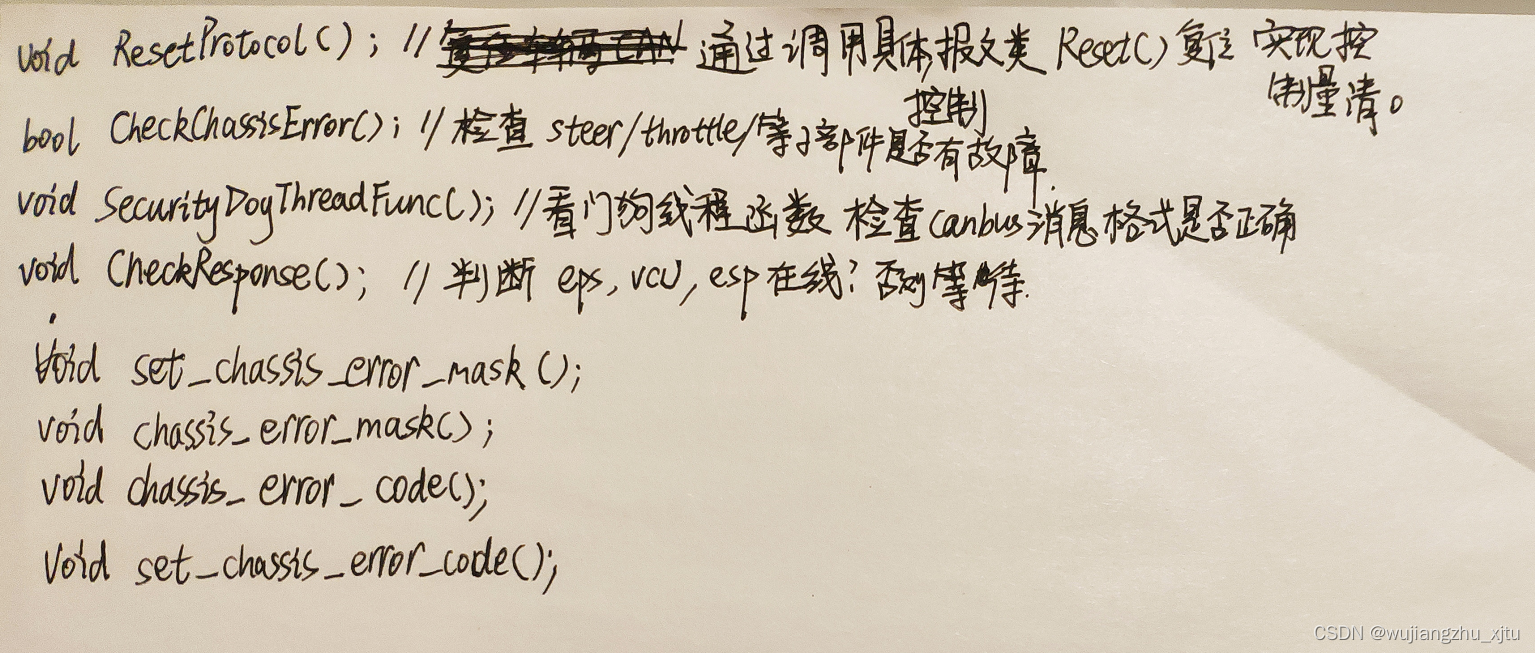 void ResetProtocol(); // 通过调用具体报文类 Reset()复位 实现控
制量清。
控制
bool CheckChassisError(); // 检查 steer/throttle/等子部件是否有故障.
void SecurityDogThreadFunc(); //看门狗线程函数 检查canbus消息格式是否正确
void CheckResponse(); // 判断 eps, vcu, esp在线? 否则等待.
void set_chassis_error_mask();
void chassis_error_mask();
void chassis_error_code();
void set_chassis_error_code();
CSDN @wujiangzhu_xjtu